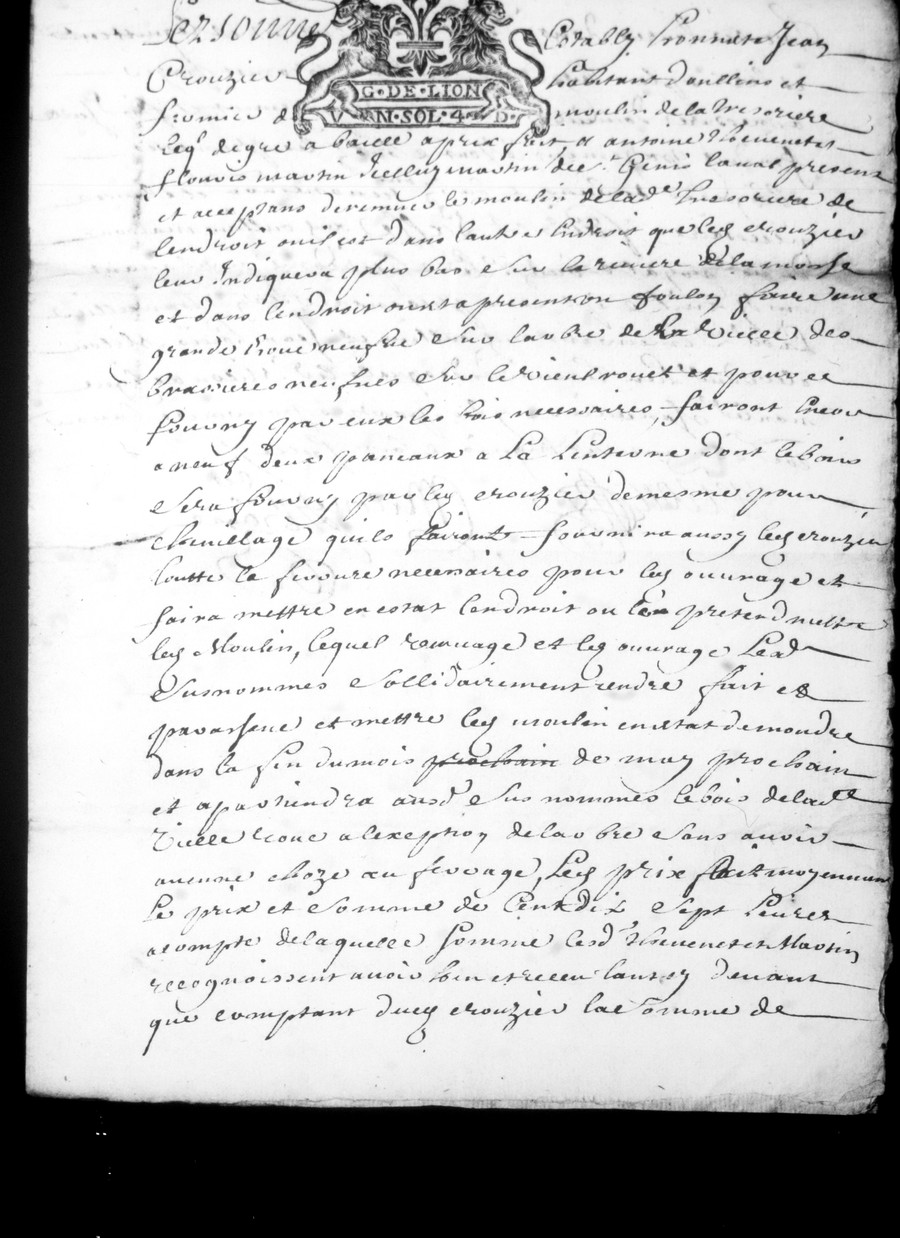 Personne Establÿ honneste Jean
Crouzier habitant doullins et
fermier d moulin de la tresoriere
G·DE·LION
V N·SOL·4·D·
Leql de gre a baille a prix fait a antoine thevenet et
flouris martin de St Genis laval present
et aceptans de remuer le moulin de lade tresoriere de
lendroit ou il est dans lautre endroit que led crouzier
leur Indiquera plus bas sur la riviere
et dans lendroit ou est a present un foulon faire une
grande roue neufve sur larbre de la vielle des
brassieres neufves sur le vieux rouet et pour ce
fournir par eux les bois necessaires, fairont encor
a neuf deux paneaux a La Lenterne dont le bois
sera fourny par led crouzier de mesme pour
chevillage quils fairont fournira aussy led crouzier
toutte la ferrure necessaires pour led ouvrage et
faira mettre en estat lendroit ou lon pretend mettre
led Moulin, lequel remuage et led ouvrage Lesd
susnommes sollidairement rendre fait et
parachevé et mettre led moulin en estat de moudre
dans la fin du mois prochain de may prochain
et apartiendra ausd susnommes le bois de lade
vielle roue a lexeption de larbre sans avoir
aucune choze au ferrage, Led prix fait moyennant
Le prix et somme de Cent dix sept Livres
a compte de laquelle somme lesd Thevenet et Martin
recognoissent avoir heu et receu tantost devant
que comptant dud crouzier la somme de